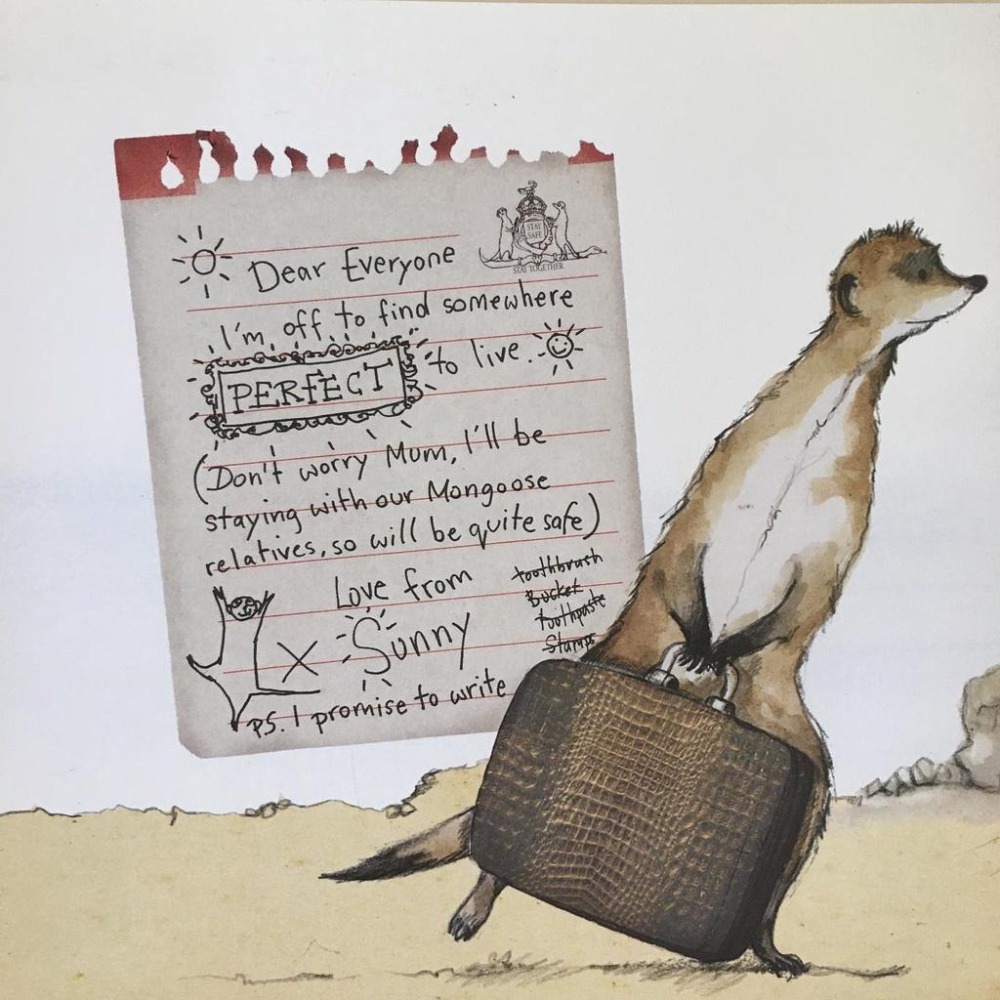 STAY
SAFE
STAY TOGETHER
Dear Everyone
I'm off to find somewhere
PERFECT to live.
(Don't worry Mum, I'll be
staying with our Mongoose
relatives, so will be quite safe)
Love from
x Sunny
toothbrush
Bucket
toothpaste
Stamps
PS. I promise to write